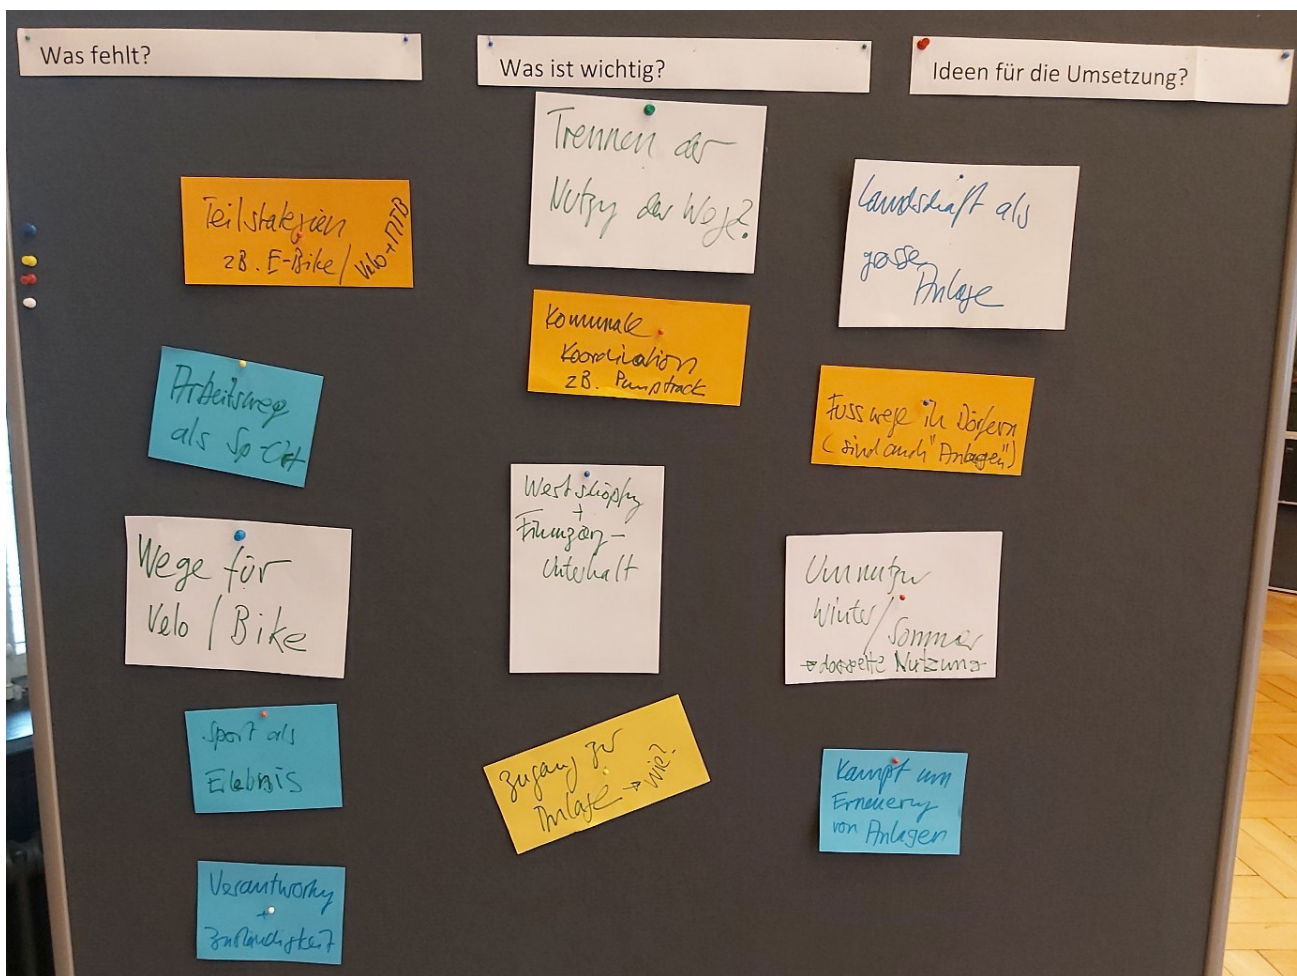 Was fehlt?
Teilstategien
zB. E-Bike/
Velo+MTB
Arbeitsweg
als Sp-Ort
Wege für
Velo / Bike
Sport als
Elebnis
Verantwortung
+
Zuständigkeit
Was ist wichtig?
Trennen der
Nutzg der Wege?
Komunale
Koordination
zB. Pumptrack
Wertshöpfg
+
Unterhalt
Zugang zur
Anlage → wie?
Ideen für die Umsetzung?
Landschaft als
grosse
Anlage
Fusswege in Dörfern
(sind auch "Anlagen")
Umnutzg
Winter/
Sommer
→ doppelte Nutzung
Kampf um
Erneuerg
von Anlagen